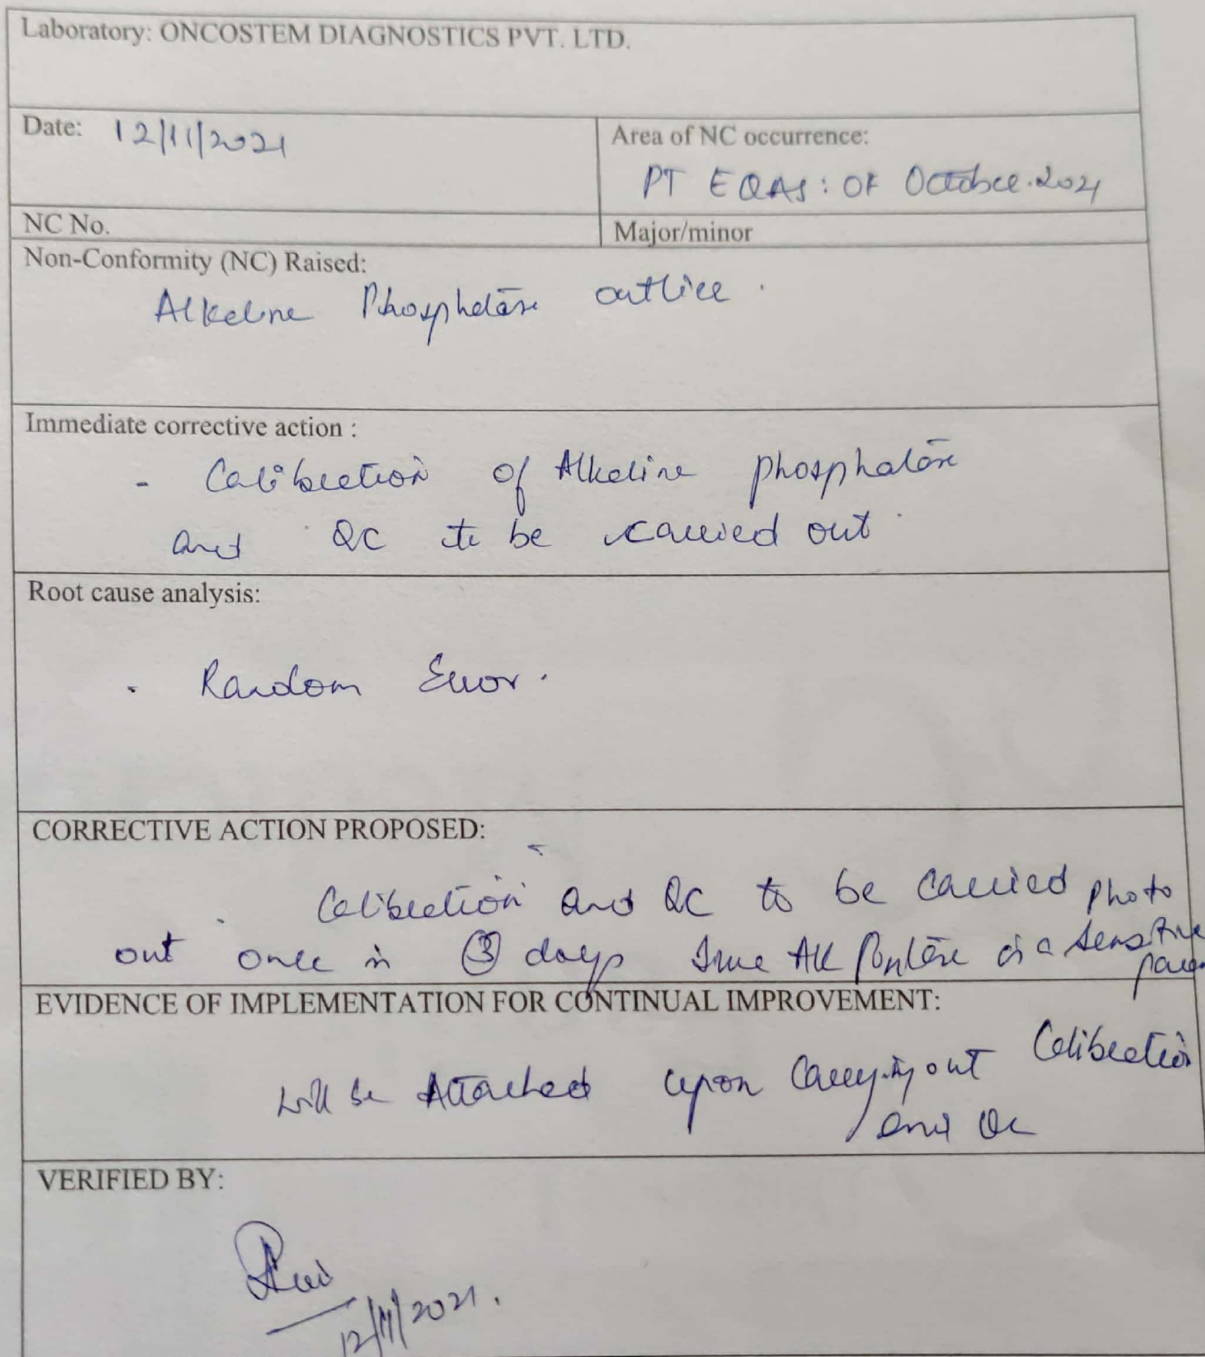 Laboratory: ONCOSTEM DIAGNOSTICS PVT. LTD.
Date: 12/11/2021
Area of NC occurrence:
PT EQAS: OF October.2021
NC No.
Major/minor
Non-Conformity (NC) Raised:
Alkaline Phosphatase outlier.
Immediate corrective action :
- Calibration of Alkaline phosphatase
and QC to be carried out.
Root cause analysis:
. Random Error.
CORRECTIVE ACTION PROPOSED:
. Calibration and QC to be carried photo
out once in 3 days Since Alk is a sensitive
para
EVIDENCE OF IMPLEMENTATION FOR CONTINUAL IMPROVEMENT:
will be Attached upon Carrying out Calibration
and QC
VERIFIED BY:
12/11/2021.